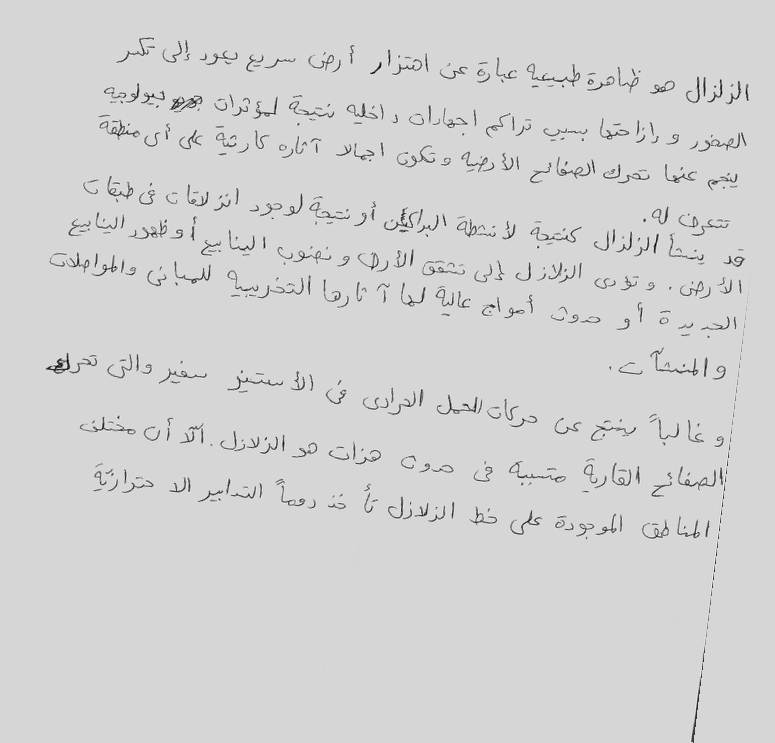 الزلزال هو ظاهرة طبيعيه عبارة عن اهتزاز أرض سريع يعود إلى تكسر
الصخور وإزاحتها بسبب تراكم اجهادات داخليه نتيجة لمؤثرات بيولوجيه
ينجم عنها تحرك الصفائح الأرضيه وتكون اجمالا آثاره كارثية على أى منطقة
تتعرض له.
قد ينشأ الزلزال كنتيجة لأنشطة البراكين أو نتيجة لوجود انزلاقات فى طبقات
الأرض. وتؤدى الزلازل إلى تشقق الأرض ونضوب الينابيع أو ظهور الينابيع
الجديدة أو حدوث أمواج عالية لها آثارها التخريبيه للمبانى والمواصلات
والمنشآت.
وغالباً ينتج عن حركات الحمل الحرارى فى الأستينر سفير والتى تحرك
الصفائح القارية متسببة فى حدوث هزات هو الزلازل. آلا أن مختلف
المناطق الموجودة على خط الزلازل تأخذ دوماً التدابير الاحترازيّة